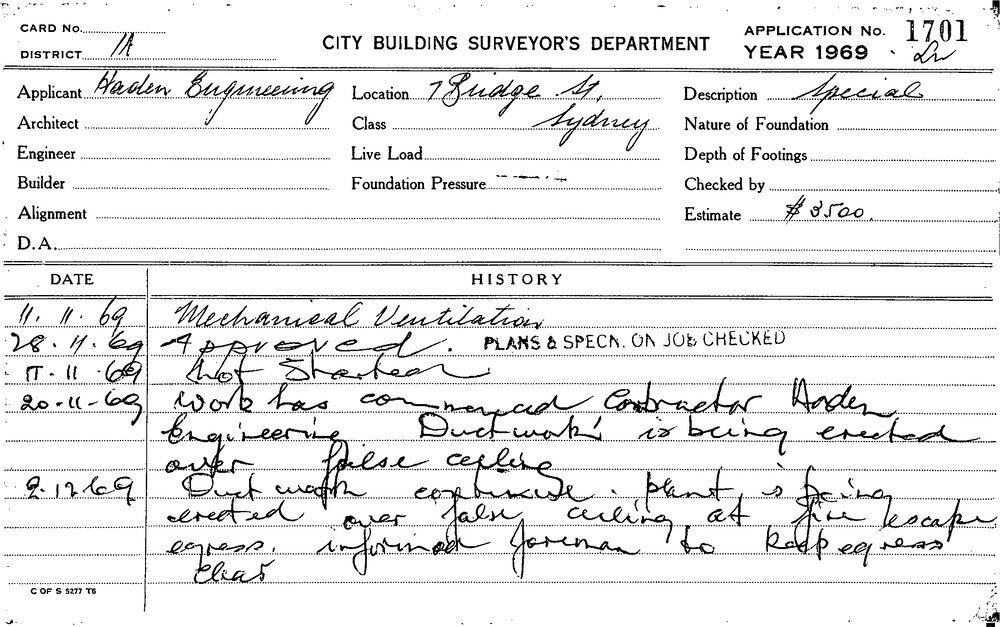 CARD No.
DISTRICT 1A
CITY BUILDING SURVEYOR'S DEPARTMENT
APPLICATION No. 1701
YEAR 1969
Applicant Haden Engineering
Location 7 Bridge St,
Description Special
Architect
Class Sydney
Nature of Foundation
Engineer
Live Load
Depth of Footings
Builder
Foundation Pressure
Checked by
Alignment
Estimate $3500.
D.A.
DATE HISTORY
11. 11. 69 Mechanical Ventilation
28. 11. 69 Approved. PLANS & SPECN. ON JOB CHECKED
17. 11. 69 Not Started
20-11-69 Work has commenced Contractor Haden
Engineering Ductwork is being erected
over false ceiling
2.12.69 Duct work continuing. plant is being
erected over false ceiling at fire escape
egress. informed foreman to keep egress
clear
C OF S 5277 T6